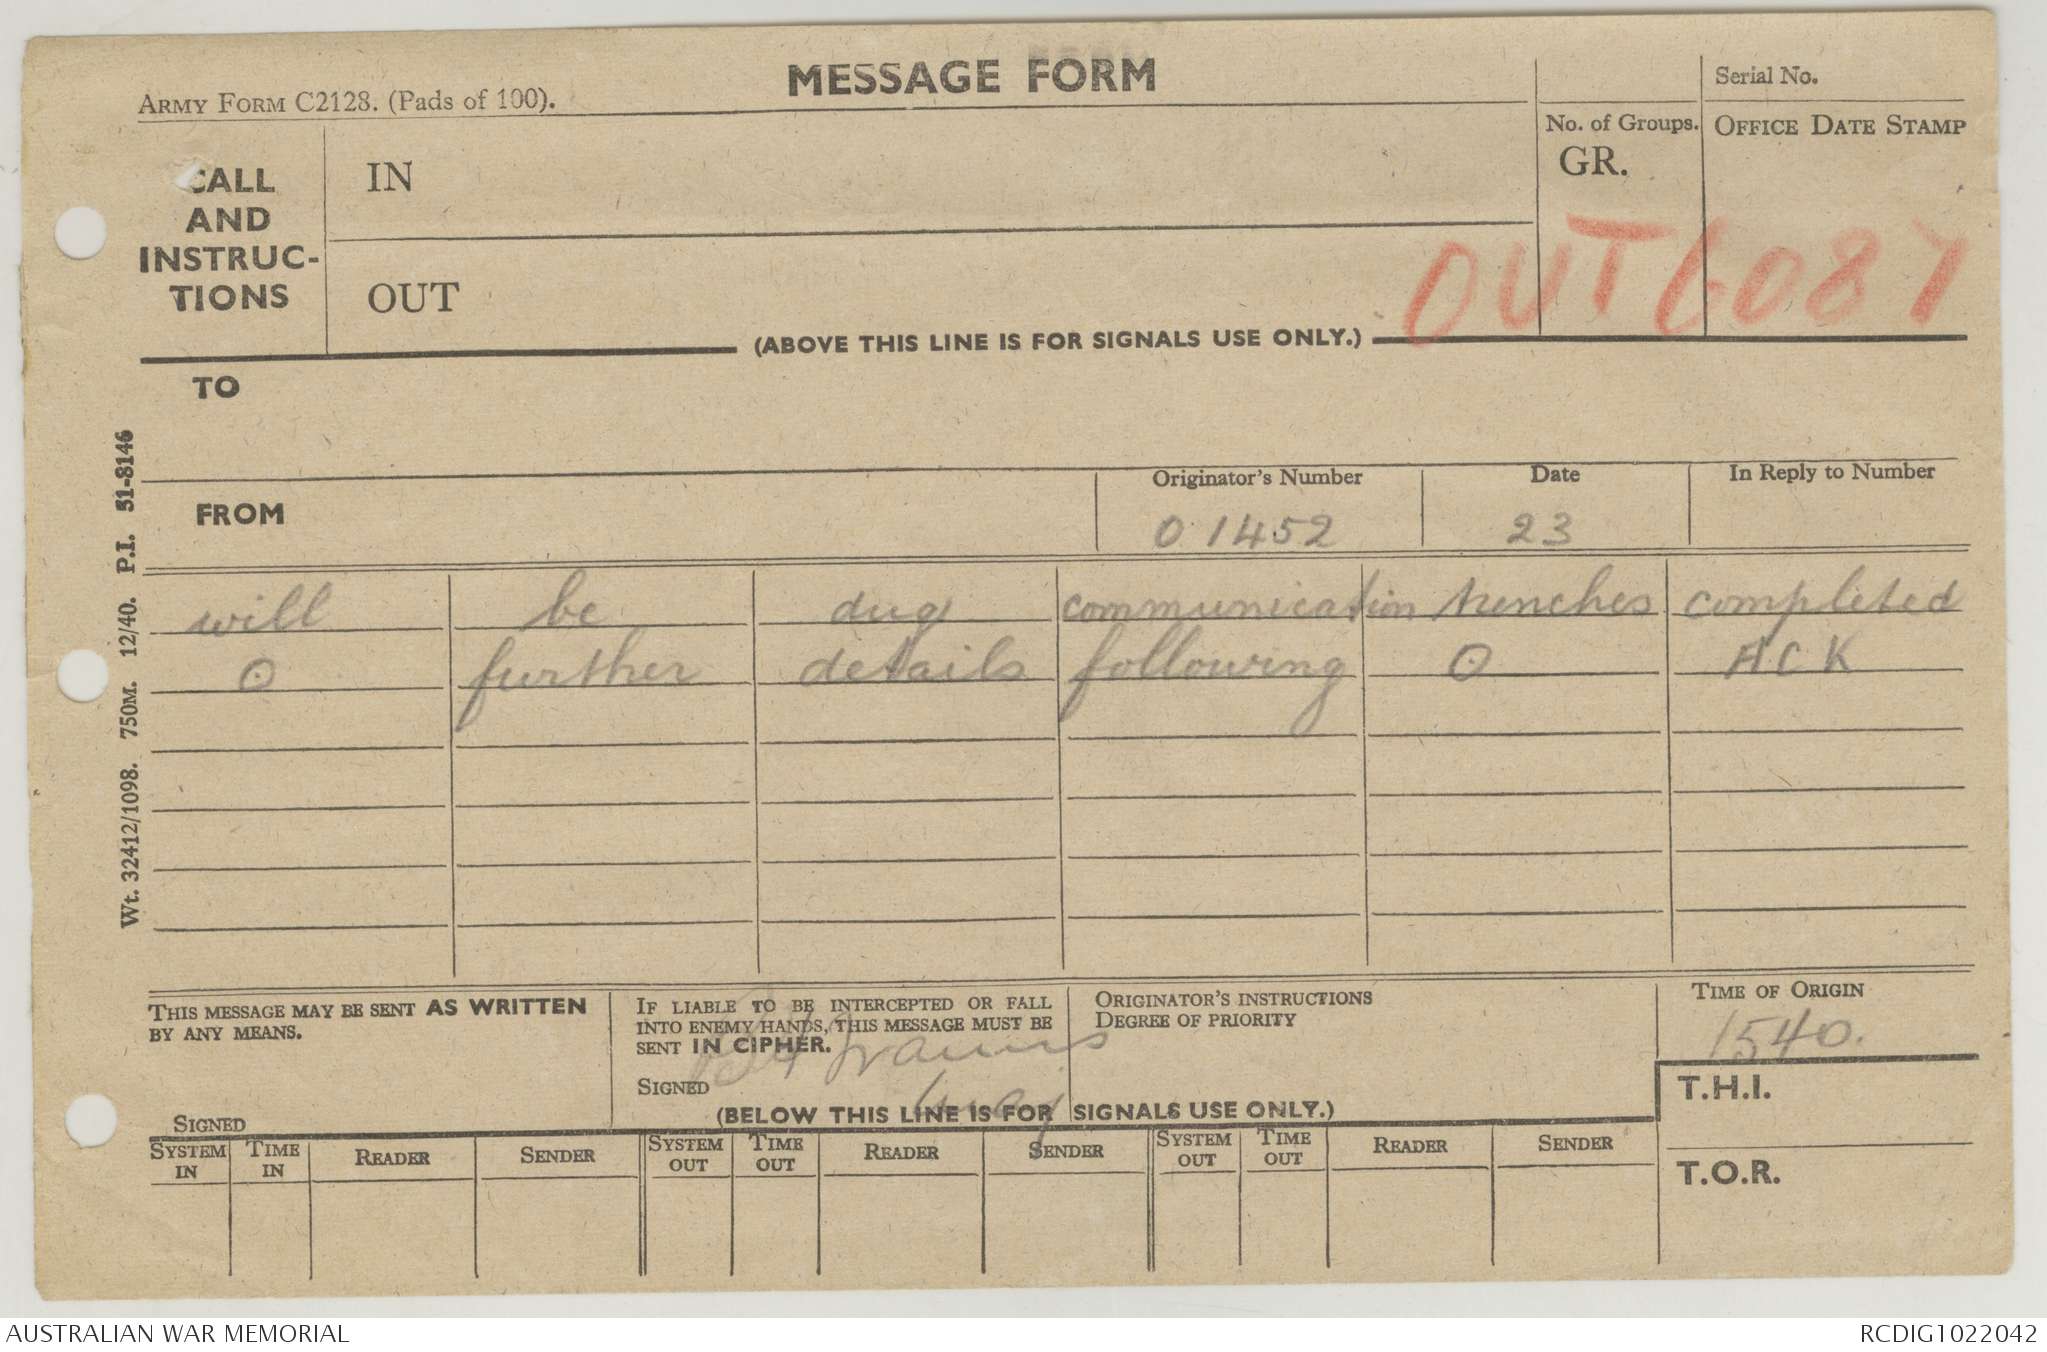 MESSAGE FORM
ARMY FORM C2128. (Pads of 100).
Serial No.
No. of Groups.
GR.
OFFICE DATE STAMP
CALL
AND
INSTRUC-
TIONS
IN
OUT
OUT 6087
(ABOVE THIS LINE IS FOR SIGNALS USE ONLY.)
TO
FROM
Originator's Number
01452
Date
23
In Reply to Number
will be dug communication trenches completed
⊙ further details following ⊙ ACK
THIS MESSAGE MAY BE SENT AS WRITTEN
BY ANY MEANS.
SIGNED
IF LIABLE TO BE INTERCEPTED OR FALL
INTO ENEMY HANDS, THIS MESSAGE MUST BE
SENT IN CIPHER.
SIGNED
Maj
ORIGINATOR'S INSTRUCTIONS
DEGREE OF PRIORITY
TIME OF ORIGIN
1540.
T.H.I.
T.O.R.
(BELOW THIS LINE IS FOR SIGNALS USE ONLY.)
SYSTEM IN TIME IN READER SENDER SYSTEM OUT TIME OUT READER SENDER SYSTEM OUT TIME OUT READER SENDER
Wt. 32412/1098. 750M. 12/40. P.I. 51-8146
AUSTRALIAN WAR MEMORIAL
RCDIG1022042